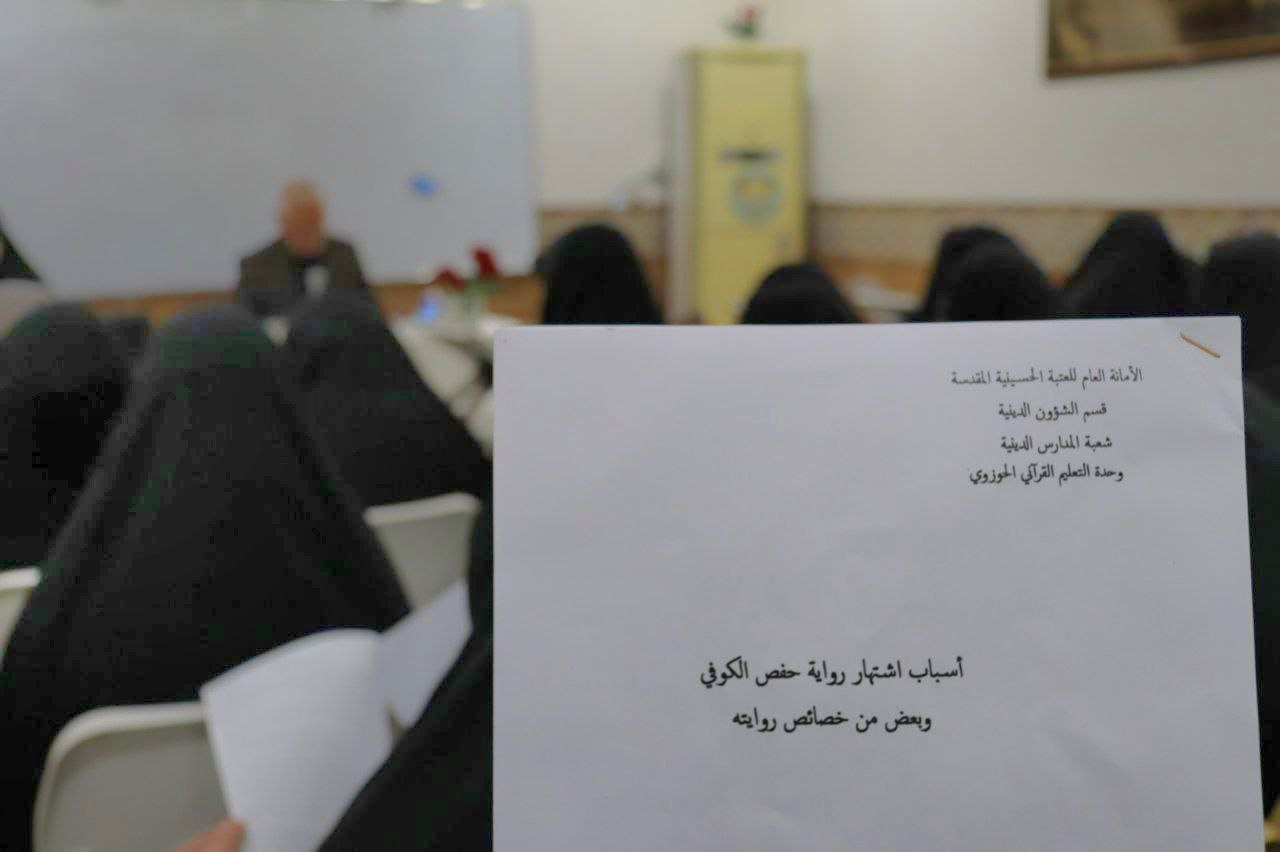 الأمانة العام للعتبة الحسينية المقدسة
قسم الشؤون الدينية
شعبة المدارس الدينية
وحدة التعليم القرآني الحوزوي
أسباب اشتهار رواية حفص الكوفي
وبعض من خصائص روايته